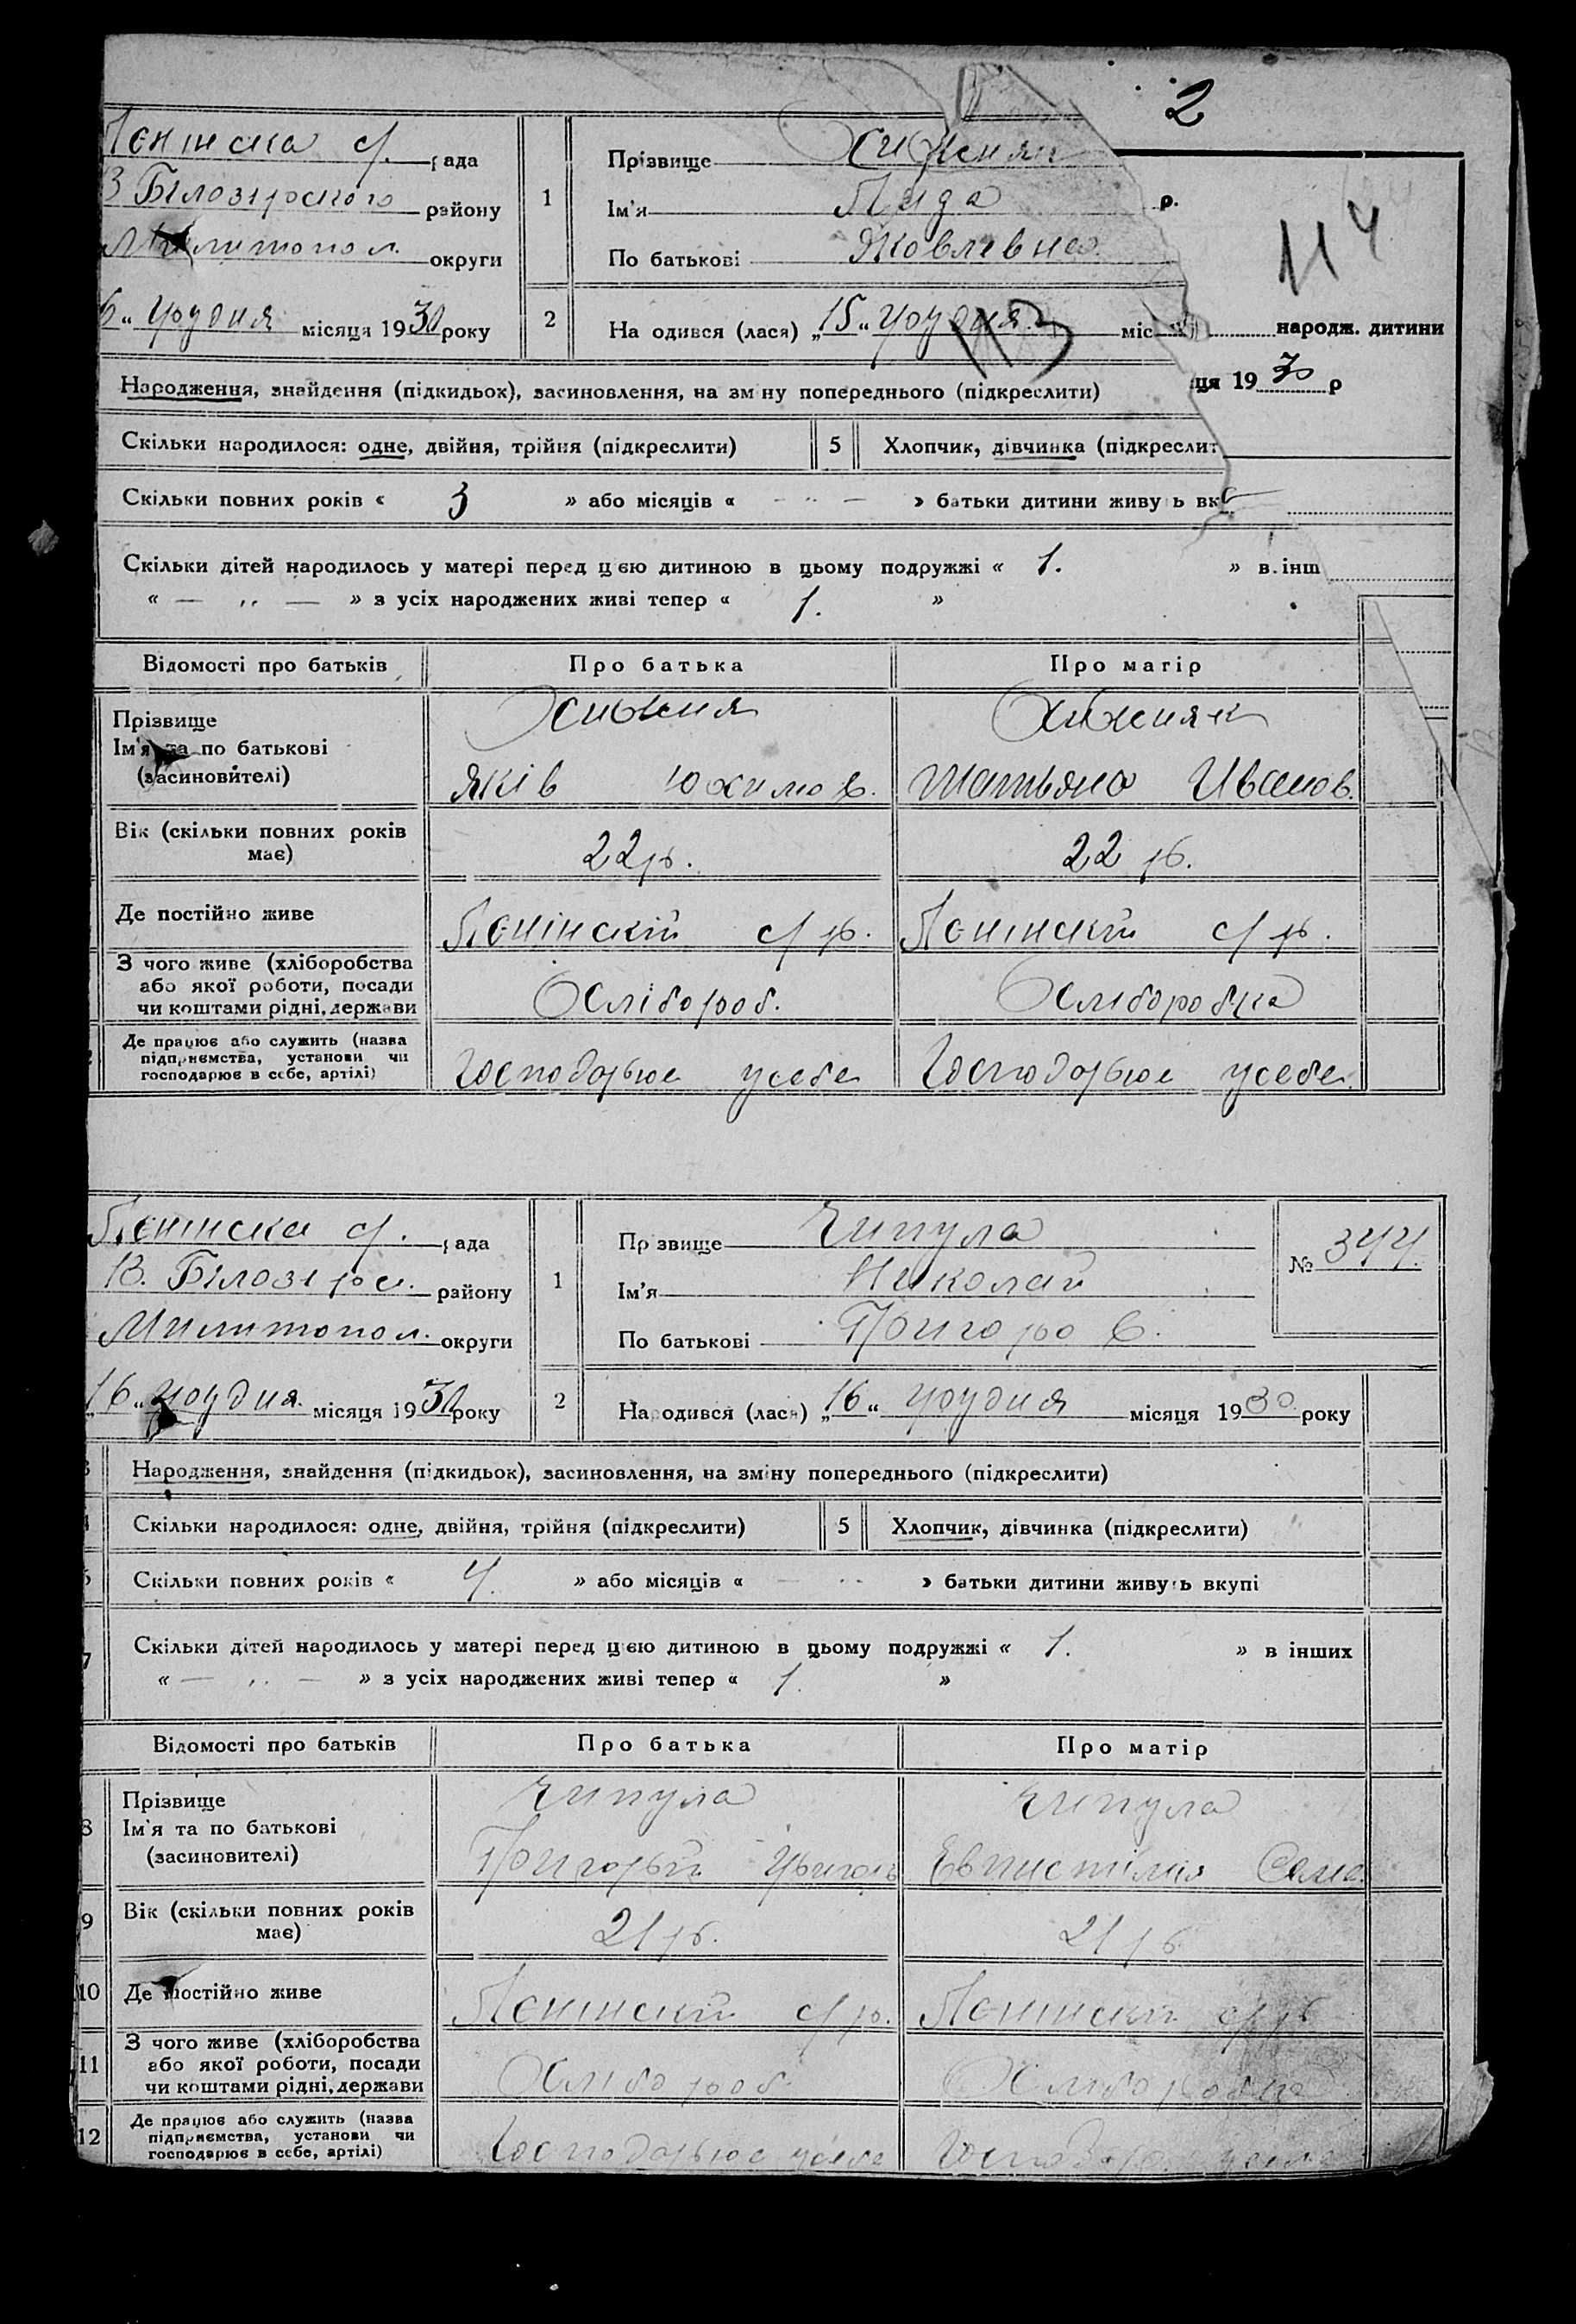 2
Ленінска с/. рада
В Білозірского району
Милитопол. округи
6 „ грудня місяця 1930 року
1
Прізвище Хижняк
Ім'я Лида
По батькові Яковлевна
р.
114
2
На одився (лася) „15" грудня міс
113
народж. дитини
ця 19 30 р
Народження, знайдення (підкидьох), засиновлення, на зміну попереднього (підкреслити)
Скільки народилося: одне, двійня, трійня (підкреслити) 5 Хлопчик, дівчинка (підкреслит
Скільки повних років « 3 » або місяців « — ·· — » батьки дитини живуть вк
Скільки дітей народилось у матері перед цією дитиною в цьому подружжі « 1. » в інш
« — ,, — » з усіх народжених живі тепер « 1. »
Відомості про батьків Про батька Про матір
Прізвище
Ім'я та по батькові
(засиновителі)
Хижня
Яків Юхимов.
Хижняк
Татьяна Иванов.
Вік (скільки повних років
має)
22 р. 22 р.
Де постійно живе Ленінскій с/р. Ленінскій с/р.
З чого живе (хліборобства
або якої роботи, посади
чи коштами рідні, держави
Хлібороб. Хліборобка
Де працює або служить (назва
підприємства, установи чи
господарює в себе, артілі)
Господарьює усебе Господарьює усебе.
Ленінска с/. рада
В. Білозірс. району
Милитопол. округи
„16" грудня місяця 1930 року
1
Прізвище Чипула
Ім'я Николай
По батькові Григоров.
№ 344.
2
Народився (лася) „16" грудня місяця 1930 року
3 Народження, знайдення (підкидьок), засиновлення, на зміну попереднього (підкреслити)
4 Скільки народилося: одне, двійня, трійня (підкреслити) 5 Хлопчик, дівчинка (підкреслити)
6 Скільки повних років « 4. » або місяців « — ·· » батьки дитини живуть вкупі
7 Скільки дітей народилось у матері перед цією дитиною в цьому подружжі « 1. » в інших
« — ,, — » з усіх народжених живі тепер « 1. »
Відомості про батьків Про батька Про матір
8 Прізвище
Ім'я та по батькові
(засиновителі)
Чипула
Григорьй
Чипула
9 Вік (скільки повних років
має)
21 р. 21 р.
10 Де постійно живе Ленінскій с/р. Ленінскій с/р
11 З чого живе (хліборобства
або якої роботи, посади
чи коштами рідні, держави
Хлібороб. Хліборобка
12 Де працює або служить (назва
підприємства, установи чи
господарює в себе, артілі)
Господарьює усебе